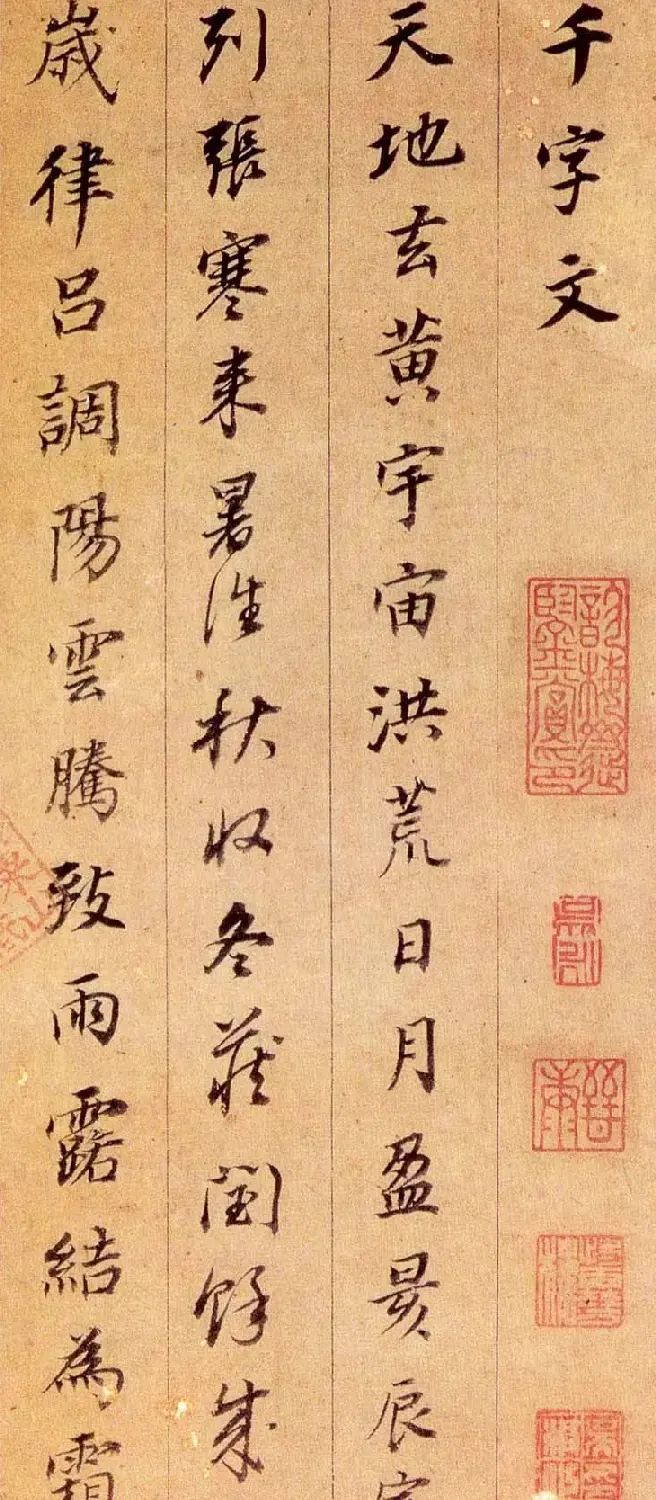 千字文
天地玄黃宇宙洪荒日月盈昃辰宿
列張寒来暑往秋收冬蔵閏餘成
歲律呂調陽雲騰致雨露結為霜